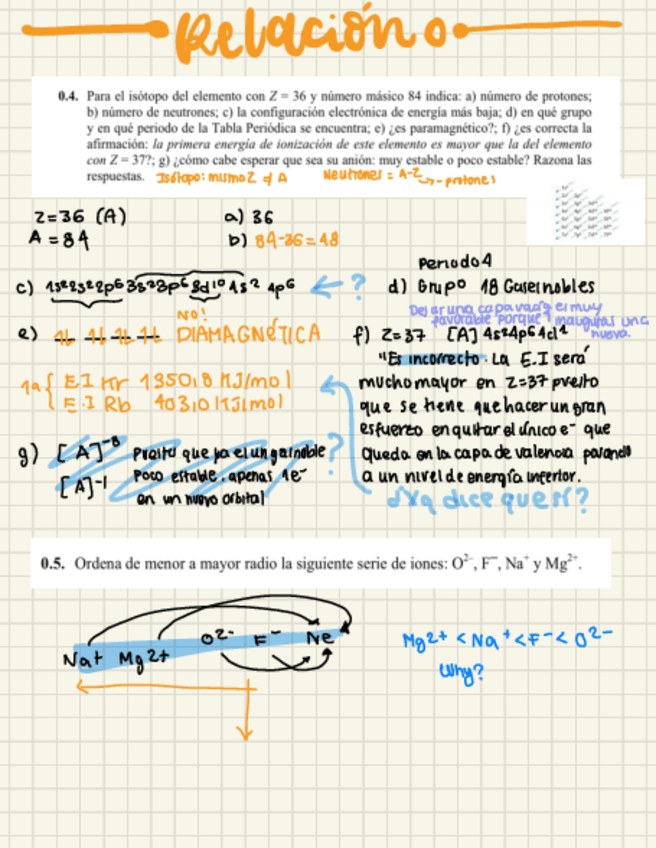 Relación 0
0.4. Para el isótopo del elemento con Z = 36 y número másico 84 indica: a) número de protones;
b) número de neutrones; c) la configuración electrónica de energía más baja; d) en qué grupo
y en qué periodo de la Tabla Periódica se encuentra; e) ¿es paramagnético?; f) ¿es correcta la
afirmación: la primera energía de ionización de este elemento es mayor que la del elemento
con Z = 37?; g) ¿cómo cabe esperar que sea su anión: muy estable o poco estable? Razona las
respuestas. Isótopo: mismo Z ≠ A Neutrones = A-Z → - protones
Z=36 (A) a) 36
A = 84 b) 84-36=48
Periodo 4
c) 1s²2s²2p⁶3s²3p⁶3d¹⁰4s² 4p⁶ ← ? d) Grupo 18 Gases nobles
Dejar una capa vacía es muy
favorable porque inauguras una
nueva.
No!
e) DIAMAGNÉTICA f) Z=37 [A] 4s²4p⁶4d¹
"Es incorrecto. La E.I será
1a { E.I Kr 1350,8 KJ/mol mucho mayor en Z=37 puesto
E.I Rb 403,0 KJ/mol que se tiene que hacer un gran
esfuerzo en quitar el único e⁻ que
g) [A]⁻⁸ Puesto que ya es un gas noble ? queda en la capa de valencia pasando
[A]⁻¹ Poco estable, apenas 1e⁻ a un nivel de energía inferior.
en un nuevo orbital ¿Xq dice que sí?
0.5. Ordena de menor a mayor radio la siguiente serie de iones: O²⁻, F⁻, Na⁺ y Mg²⁺.
Na+ Mg2+ O2- F- Ne Mg2+ < Na+ < F- < O2-
Why?